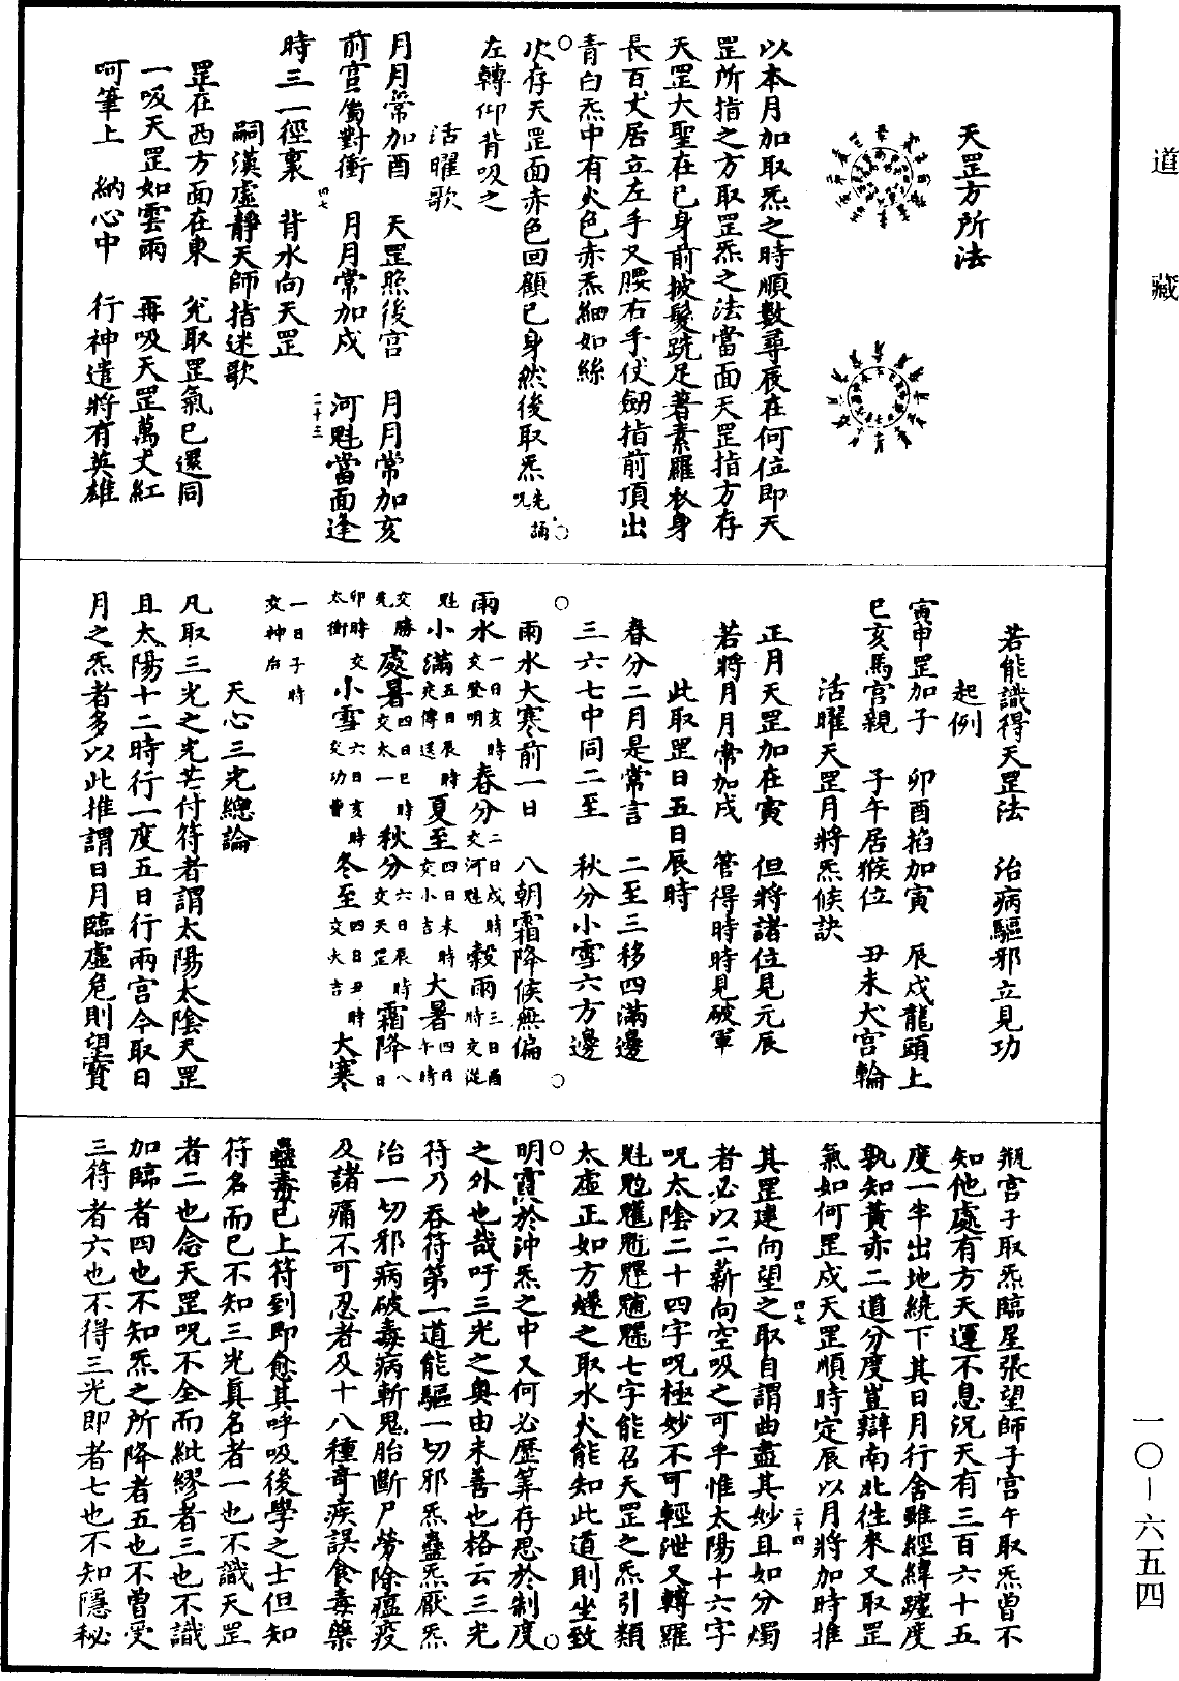 道藏
天罡方所法
以本月加取炁之時順數尋辰在何位即天
罡所指之方取罡炁之法當面天罡指方存
天罡大聖在已身前披髮跣足著素羅衣身
長百丈居立左手叉腰右手仗劒指前頂出
青白炁中有火色赤炁細如絲
○次存天罡面赤色回顧已身然後取炁先誦呪○
左轉仰背吸之
活曜歌
月月常加酉　天罡照後宫　月月常加亥
前宫為對衝　月月常加戍　河魁當面逢
時三一徑裏　背水向天罡
四七　二十三
嗣漢虛靜天師指迷歌
罡在西方面在東　兊取罡氣已還同
一吸天罡如雲雨　再吸天罡萬丈紅
呵筆上　納心中　行神遣將有英雄
若能識得天罡法　治病驅邪立見功
起例
寅申罡加子　卯酉掐加寅　辰戍龍頭上
巳亥馬宫親　子午居猴位　丑未犬宫輪
活曜天罡月將炁候訣
正月天罡加在寅　但將諸位見元辰
若將月月常加戍　管得時時見破軍
此取罡日五日辰時
春分二月是常言　二至三移四滿邊
三六七中同二至　秋分小雪六方邊
○雨水大寒前一日　八朝霜降候無偏○
雨水一日亥時交登明　春分二日戍時交河魁　穀雨三日酉時交從
魁　小滿五日辰時交傳送　夏至四日未時交小吉　大暑四日午時
交勝先　處暑四日巳時交太一　秋分六日辰時交天罡　霜降八日
卯時交太衝　小雪六日亥時交功曹　冬至四日丑時交大吉　大寒
一日子時交神后
天心三光總論
凡取三光之光芒付符者謂太陽太陰天罡
且太陽十二時行一度五日行兩宫今取日
月之炁者多以此推謂日月臨虛危則望寶
瓶宫子取炁臨星張望師子宫午取炁曾不
知他處有方天運不息況天有三百六十五
度一半出地繞下其日月行舍雖經緯躔度
孰知黃赤二道分度豈辯南北徃來又取罡
氣如何罡戍天罡順時定辰以月將加時推
其罡建向望之取自謂曲盡其妙且如分燭
者必以二薪向空吸之可乎惟太陽十六字
四七　二十四
呪太陰二十四字呪極妙不可輕泄又轉羅
七字能召天罡之炁引類
太虛正如方燧之取水火能知此道則坐致
○明霄於沖炁之中又何必歷筭存思於制度○
之外也哉吁三光之奥由未善也格云三光
符乃吞符第一道能驅一切邪炁蠱炁厭炁
治一切邪病破毒病斬鬼胎斷尸勞除瘟疫
及諸痛不可忍者及十八種奇疾誤食毒藥
蠱毒已上符到即愈其呼吸後學之士但知
符名而已不知三光真名者一也不識天罡
者二也念天罡呪不全而紕繆者三也不識
加臨者四也不知炁之所降者五也不曾受
三符者六也不得三光即者七也不知隱秘
一〇—六五四